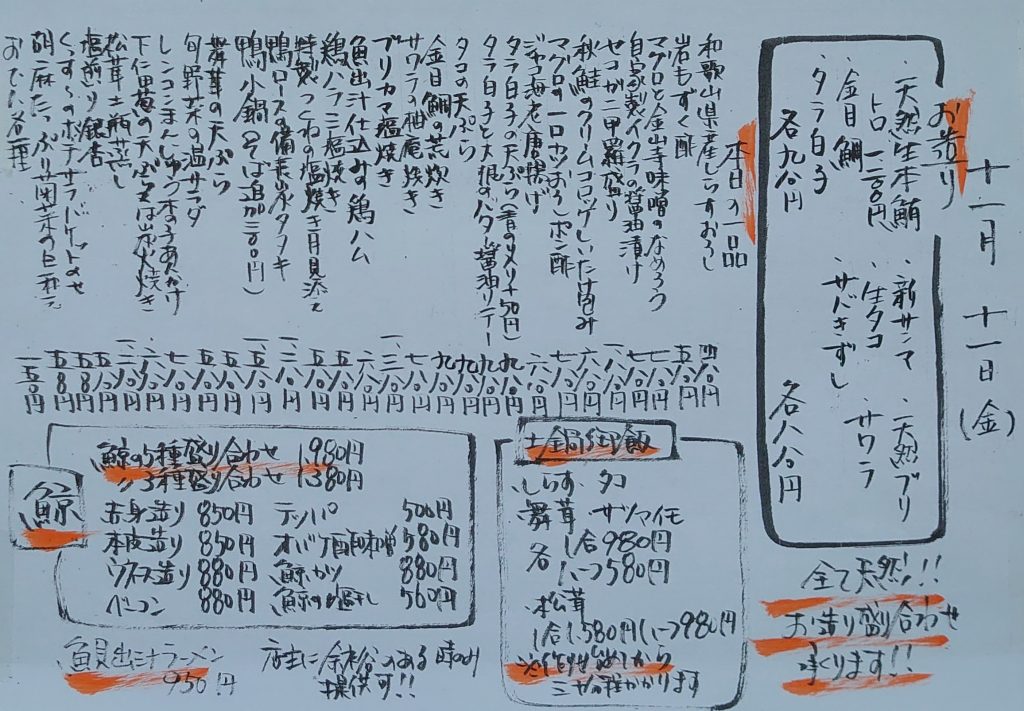 十一月 十一日 (金)
お造り
・天然生本鮪
トロ 一二〇〇円
・金目鯛
・タラ白子
各九八〇円
・新サンマ
・生タコ
・サバきずし
・天然ブリ
・サワラ
各八八〇円
全て天然!!
お造り盛り合わせ
承ります!!
本日の一品
和歌山県産しらすおろし 四八〇円
岩もずく酢 五八〇円
マグロと金山寺味噌のなめろう 七八〇円
自家製イクラの醤油漬け 七八〇円
セコガニ甲羅盛り
秋鮭のクリームコロッケしいたけ包み
マグロの一口カツおろしポン酢 七八〇円
ジャコ海老唐揚げ 六八〇円
タラ白子の天ぷら(青のメリケ+50円) 九八〇円
タラ白子と大根のバター醤油ソテー 九八〇円
タコの天ぷら 九八〇円
金目鯛の荒炊き
サワラの柚庵焼き
ブリカマ塩焼き
魚出汁仕込みの鶏ハム 六八〇円
鶏ハラミ塩焼き 五八〇円
特製つくねの塩焼き月見添え 五八〇円
鴨ロースの備長炭タタキ
鴨小鍋(そば追加三〇〇円)
舞茸の天ぷら 五八〇円
旬野菜の温サラダ
レンコンまんじゅうきのこあんかけ 七八〇円
下仁田葱の天ぷら又は炭火焼き
松茸土瓶蒸し
塩煎り銀杏 五八〇円
くっすぅのポテサラバケットのせ 五八〇円
胡麻たっぷり菊菜の白和え 五八〇円
おでん各種 一五〇円
土鍋御飯
しらす・タコ
舞茸・サツマイモ
各 1合980円
ハーフ580円
松茸
1合1,580円ハーフ980円
※作り始めてから
三十分程かかります
鯨
鯨の5種盛り合わせ 1,980円
〃3種盛り合わせ 1,380円
赤身造り 850円 テッパ 500円
本皮造り 850円 オバケ酢味噌 580円
ウネス造り 880円 鯨カツ 880円
ベーコン 880円 鯨の塩干し 560円
魚貝出汁ラーメン
950円
店主に余裕のある時のみ
提供可!!